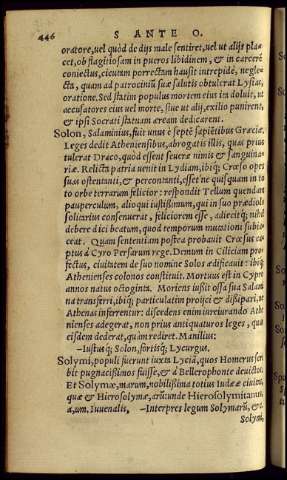 446 S ANTE O.
oratore, uel quòd de dijs male sentiret, uel ut alijs pla⸗
cet, ob flagitiosam in pueros libidinem, & in carcerẽ
coniectus, cicutam porrectam hausit intrepidè, negle⸗
cta, quam ad patrociniũ suæ salutis obtulerat Lysias,
oratione. Sed statim populus mortem eius ita doluit, ut
accusatores eius uel morte, siue ut alij, exilio punirent,
& ipsi Socrati statuam æream dedicarent.
Solon, Salaminius, fuit unus è septẽ sapiẽtibus Græciæ.
Leges dedit Atheniensibus, abrogatis illis, quas prius
tulerat Draco, quòd essent seueræ nimis & sanguina⸗
riæ. Relicta patria uenit in Lydiam, ibiq; Crœso opes
suas ostentanti, & percontanti, esset ne quisquam in to
to orbe terrarum felicior: respondit Tellum quendam
pauperculum, alioqui iustissimum, qui in suo prædiolo
solitarius consenuerat, feliciorem esse, adiecitq; nihil
debere dici beatum, quod temporum mutationi subia⸗
ceat. Quam sententiam postea probauit Crœsus ca⸗
ptus à Cyro Persarum rege. Demum in Ciliciam pro⸗
fectus, ciuitatem de suo nomine Solos ædificauit: ibiq;
Athenienses colonos constituit. Mortuus est in Cypro
annos natus octoginta. Moriens iussit ossa sua Salami
na transferri, ibiq; particulatim proijci & dissipari, ne
Athenas inferrentur: discedens enim iureiurando Athe
nienses adegerat, non prius antiquaturos leges, quas
eisdem dederat, quàm rediret. Manilius:
—Iustusq; Solon, fortisq; Lycurgus.
Solymi, populi fuerunt iuxta Lyciã, quos Homerus scri
bit pugnacissimos fuisse, & à Bellerophonte deuictos.
Et Solymæ, marum, nobilissima totius Iudææ ciuitas,
quæ & Hierosolymæ, arũ: unde Hierosolymitanus,
a, um. Iuuenalis, —Interpres legum Solymarũ, &c.
Solymi,